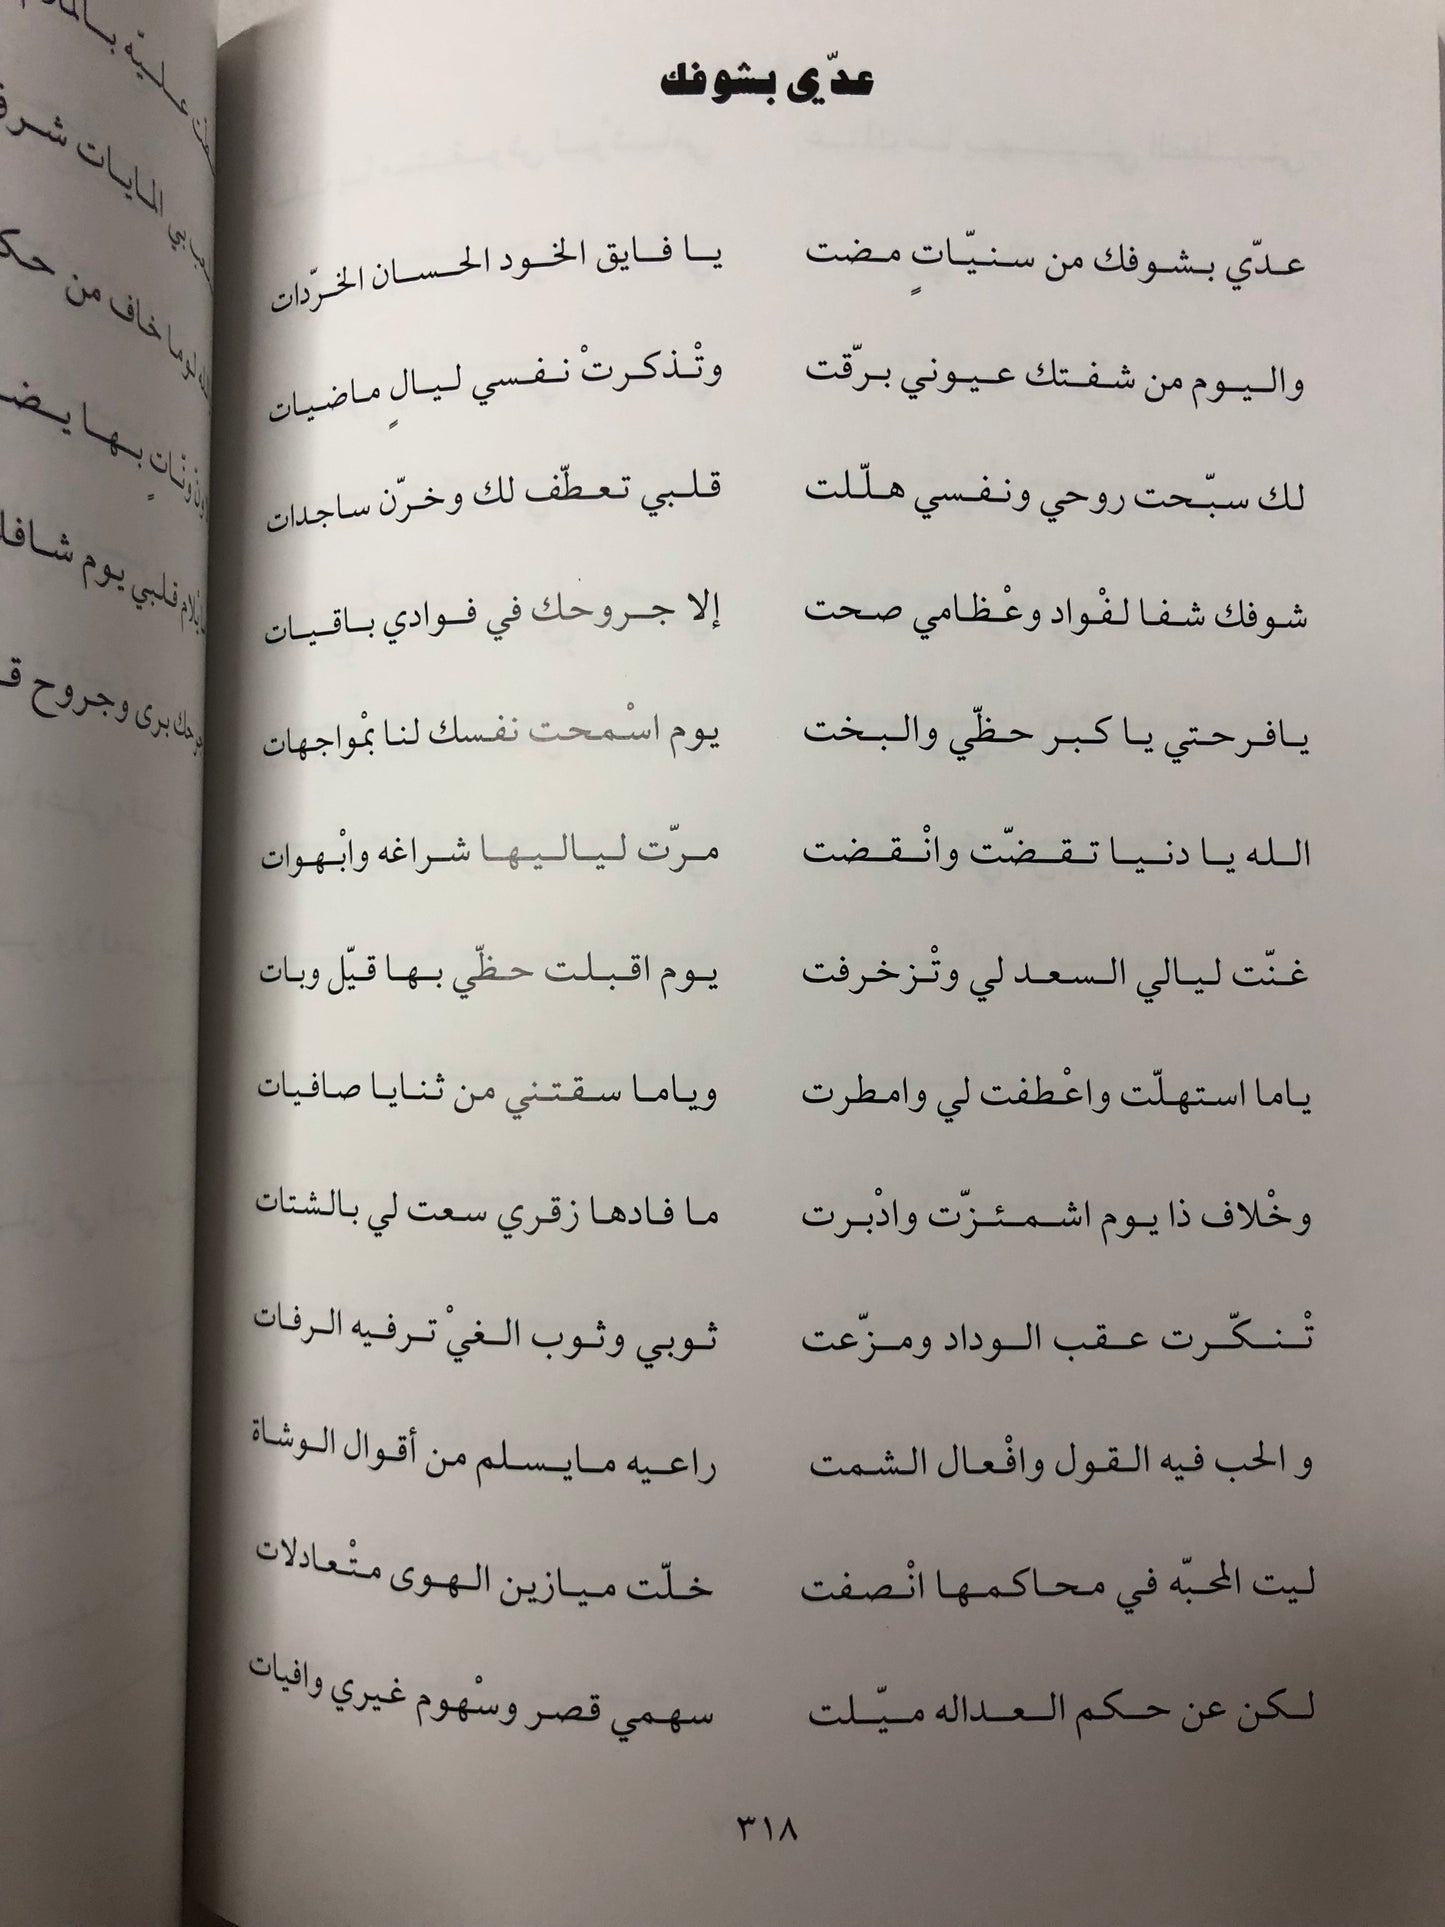 عدّي بشوفك
عدّي بشوفك من سنيّاتٍ مضت يا فايق الخود الحسان الخرّدات
واليوم من شفتك عيوني برّقت وتْذكرتْ نفسي ليالٍ ماضيات
لك سبّحت روحي ونفسي هلّلت قلبي تعطّف لك وخرّن ساجدات
شوفك شفا لفْواد وعْظامي صحت إلا جروحك في فوادي باقيات
يافرحتي يا كبر حظّي والبخت يوم اسْمحت نفسك لنا بمْواجهات
الله يا دنيا تقضّت وانْقضت مرّت لياليها شراغه وابْهوات
غنّت ليالي السعد لي وتْزخرفت يوم اقبلت حظّي بها قيّل وبات
ياما استهلّت واعْطفت لي وامطرت وياما سقتني من ثنايا صافيات
وخْلاف ذا يوم اشمئزّت وادْبرت ما فادها زقري سعت لي بالشتات
تْنكّرت عقب الوداد ومزّعت ثوبي وثوب الغيْ ترفيه الرفات
و الحب فيه القول وافْعال الشمت راعيه مايسلم من أقوال الوشاة
ليت المحبّه في محاكمها انْصفت خلّت ميازين الهوى متْعادلات
لكن عن حكم العداله ميّلت سهمي قصر وسْهوم غيري وافيات
٣١٨